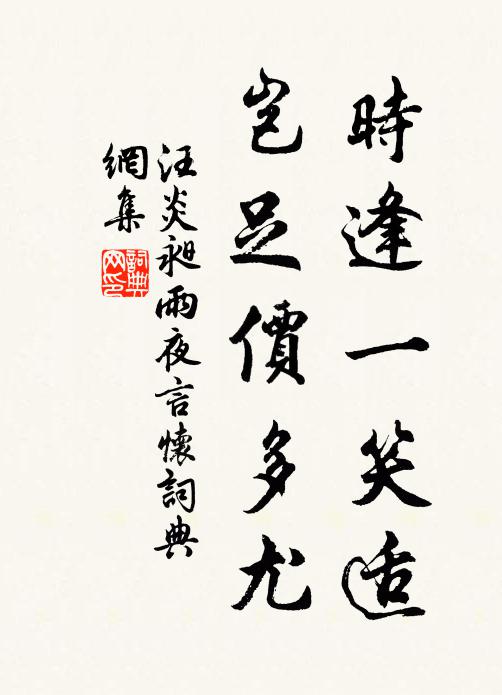 時逢一笑适
岂足價多尤
汪炎昶雨夜言懷詞典
網集
詞典
网印